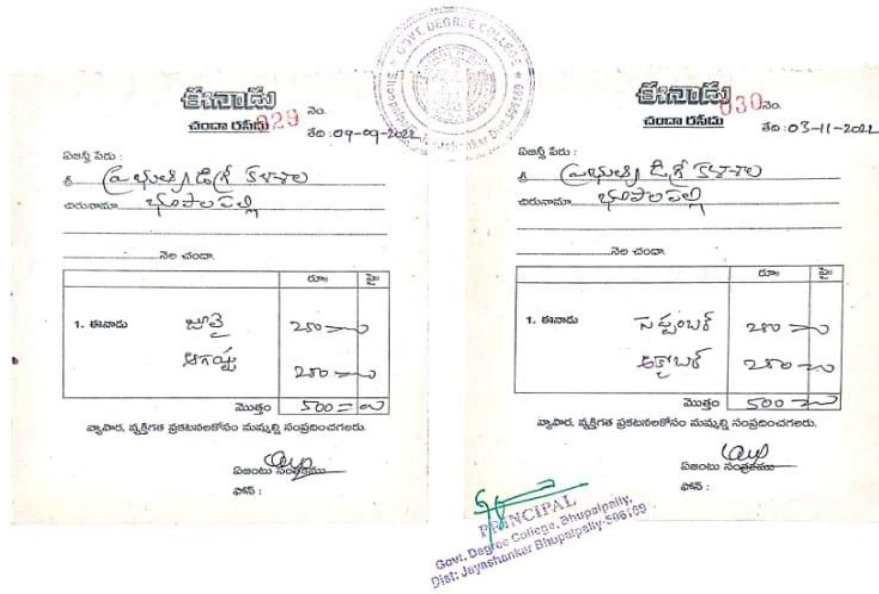 GOVT. DEGREE COLLEGE
ఈనాడు
చందా రసీదు
029 నెం.
తేది : 09-09-2022
ఏజన్సీ పేరు :
శ్రీ ప్రభుత్వ డిగ్రీ కళాశాల
చిరునామా భూపాలపల్లి
నెల చందా.
రూ॥ పై॥
1. ఈనాడు జూలై 250
ఆగష్టు 250
మొత్తం 500
వ్యాపార, వ్యక్తిగత ప్రకటనలకోసం మమ్మల్ని సంప్రదించగలరు.
ఏజంటు సంతకము
ఫోన్ :
ఈనాడు
చందా రసీదు
030 నెం.
తేది : 03-11-2022
ఏజన్సీ పేరు :
శ్రీ ప్రభుత్వ డిగ్రీ కళాశాల
చిరునామా భూపాలపల్లి
నెల చందా.
రూ॥ పై॥
1. ఈనాడు సెప్టంబర్ 250
అక్టోబర్ 250
మొత్తం 500
వ్యాపార, వ్యక్తిగత ప్రకటనలకోసం మమ్మల్ని సంప్రదించగలరు.
ఏజంటు సంతకము
ఫోన్ :
PRINCIPAL
Govt. Degree College, Bhupalpally,
Dist: Jayashankar Bhupalpally-506169